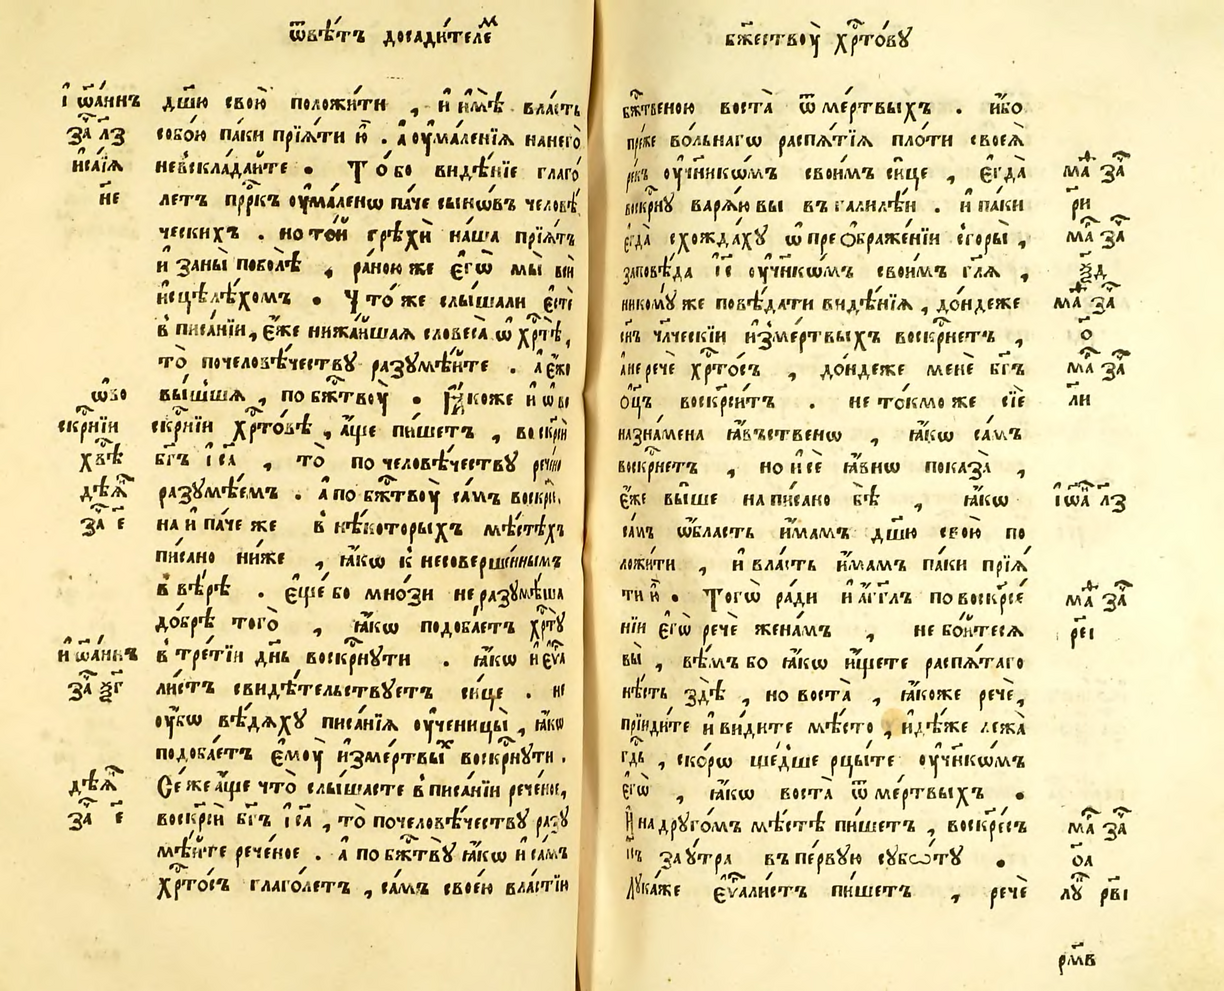 ѿвѣ́тъ досади́телеⷨ
і҆ѡ҆́аннъ
за҄ л҃з
и҆са́їѧ
н҃е
дш҃ю свою̀ положи́ти , и҆ и҆мѣ̀ вла́сть
собо́ю па́ки прїѧ́ти ю҆̀ . а҆ ѹ҆мале́нїѧ нанего̀
невскла́дайте . То́ бо видѣ́нїе глаго́
летъ прⷪ҇ркъ ѹ҆мале́нѡ па́че сынѡ́въ человѣ́
ческихъ . но то́й грѣхѝ на́ша прїѧ́тъ
и҆ за́ны поболѣ̀ , ра́ною же є҆гѡ̀ мы̀ всѝ
и҆сцѣлѣ́хомъ . Что́ же слы́шали є҆стѐ
в писа́нїи , є҆́же нижа́йшаѧ словеса̀ ѡ҆ хрⷭ҇тѣ̀ ,
то̀ почеловѣ́честву разумѣ́йте . а҆ є҆́же
вы́шшѧ , по бжⷭ҇твꙋ̀ . Ꙗ҆́коже и҆ ѡ҆ во
ѡ҆ во
скрⷭ҇нїи
хв҃ѣ
дѣѧ҄
за҄ є҃
скрⷭ҇нїи хрⷭ҇то́вѣ , а҆́ще пи́шетъ , воскрⷭ҇и́
бг҃ъ і҆с҃а , то̀ по человѣ́честву рече́но
разумѣ́емъ . а҆ по бжⷭ҇твꙋ̀ са́мъ воскрⷭ҇е́,
на и҆ па́че же в нѣ́которыхъ мѣ́стѣхъ
пи́сано ни́же , ꙗ҆́кѡ к несоверше́ннымъ
в вѣ́рѣ . є҆ще́ бо мно́зи не разумѣ́ша
до́брѣ того̀ , ꙗ҆́кѡ подоба́етъ хрⷭ҇тꙋ̀
в тре́тїи дн҃ь воскрⷭ҇нути . ꙗ҆́кѡ и҆ є҆ѵⷢ҇а
и҆ ѡ҆́аннъ
за҄ ѯ҃г
ли́стъ свидѣ́тельствуетъ си́це . не
ѹ҆́бѡ вѣ́дѧху писа́нїѧ ѹ҆ченицы̀ , ꙗ҆́кѡ
подоба́етъ є҆мꙋ̀ и҆зме́ртвыⷯ воскрⷭ҇нути .
дѣѧ҄
за҄ є҃
Се́ же а҆́ще что̀ слы́шасте в писа́нїи рече́ное,
воскрⷭ҇и́ бг҃ъ і҆с҃а , то̀ почеловѣ́честву разу
мѣ́йте рече́ное . а҆ по бжⷭ҇тву ꙗ҆́кѡ и҆ са́мъ
хрⷭ҇то́съ глаго́летъ , са́мъ свое́ю вла́стїи
бжⷭ҇ествꙋ̀ хрⷭ҇то́ву
бжⷭ҇твеною воста̀ ѿ ме́ртвыхъ . и҆́бо
пре́же во́льнагѡ распѧ́тїѧ пло́ти своеѧ̀
ре́къ ѹ҆чн҃икѡ́мъ свои́мъ си́це , є҆гда̀
воскрⷭ҇ну варѧ́ю вы въ галиле́и . и҆ па́ки
є҆гда̀ схожда́ху ѡ҆ преѡбраже́нїи сгоры̀ ,
запове́да і҆с҃ ѹ҆чн҃икѡ́мъ свои́мъ гл҃ѧ ,
никому́же повѣ́дати видѣ́нїѧ , до́ндеже
сн҃ъ чл҃ческїи и҆зме́ртвыхъ воскрⷭ҇нетъ ,
а҆не речѐ хрⷭ҇то́съ , до́ндеже менѐ бг҃ъ
ѻ҆ц҃ъ воскреси́тъ . не то́кмо же сїѐ
назна́мена ꙗ҆́вьственѡ , ꙗ҆́кѡ са́мъ
воскрⷭ҇нетъ , но и҆ сѐ ꙗ҆́внѡ показа̀ ,
є҆́же вы́ше напи́сано бѣ̀ , ꙗ҆́кѡ
са́мъ ѡ҆́бласть и҆́мамъ дш҃ю свою̀ по
ложи́ти , и҆ вла́сть и҆́мамъ па́ки прїѧ́
ти ю҆̀ . Тогѡ̀ ра́ди и҆ а҆́гг҃лъ по воскрⷭ҇е́
нїи є҆гѡ̀ речѐ жена́мъ , не бо́йтесѧ
вы̀ , вѣ́мъ бо ꙗ҆́кѡ и҆́щете распѧ́таго
нѣ́сть здѣ̀ , но воста̀ , ꙗ҆́коже речѐ,
прїиди́те и҆ ви́дите мѣ́сто , и҆дѣ́же лежа̀
гдⷭ҇ь , ско́рѡ ше́дше рцы́те ѹ҆чн҃икѡ́мъ
є҆гѡ̀ , ꙗ҆́кѡ воста̀ ѿ ме́ртвыхъ .
И҆ на друго́мъ мѣ́стѣ пи́шетъ , воскре́съ
і҆с҃ъ за у́тра въ пе́рвую субѡ́ту .
Лука́же є҆ѵⷢ҇али́стъ пи́шетъ , речѐ
маⷴ за҄
р҃и
ма҄ за҄
ѯ҃д
маⷴ за҄
о҃
ма҄ за҄
л҃и
і҆ѡ҄а л҃з
маⷴ за҄
рє҃і
ма҄ за҄
о҃а
лу҄ рв҃і
рм҃в